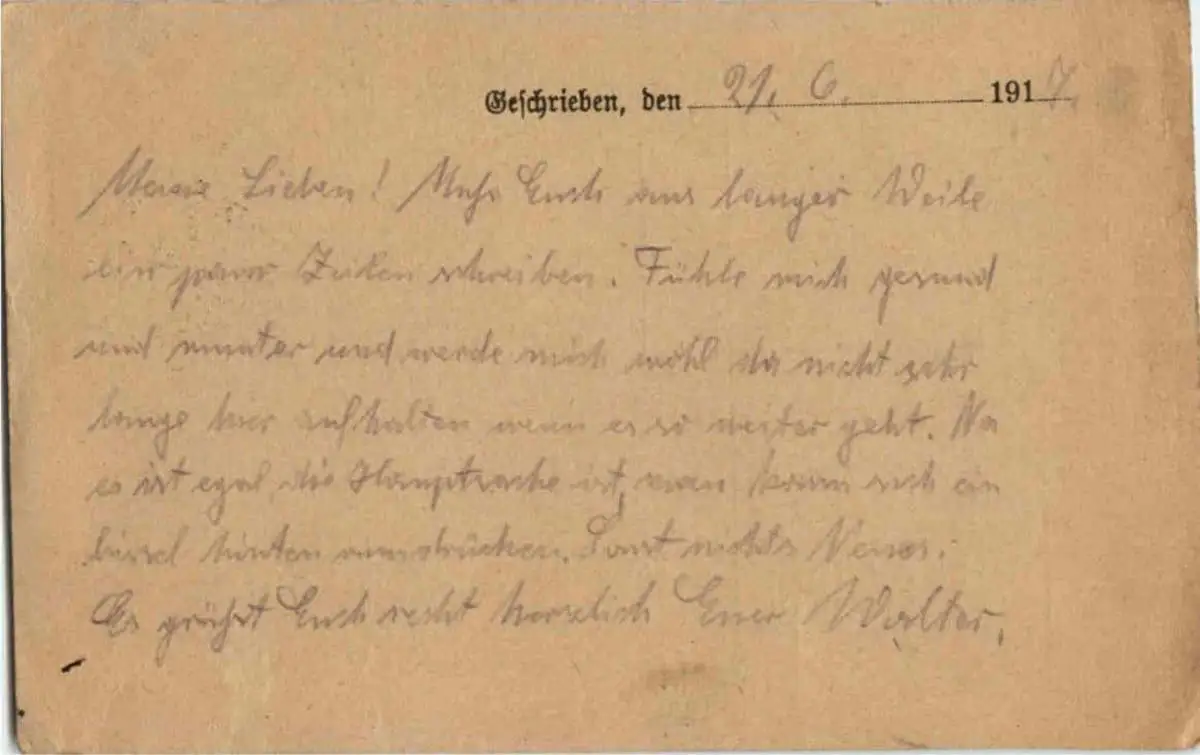 Geschrieben, den 21. 6. 1917.
Meine Lieben! Muß Euch aus langer Weile
ein paar Zeilen schreiben. Fühle mich gesund
und munter und werde mich wohl da nicht sehr
lange hier aufhalten wenn es so weiter geht. Na
es ist egal, die Hauptsache ist, man kann sich ein
bissel hinten rumdrücken. Sonst nichts Neues.
Es grüßt Euch recht herzlich Euer Walter.